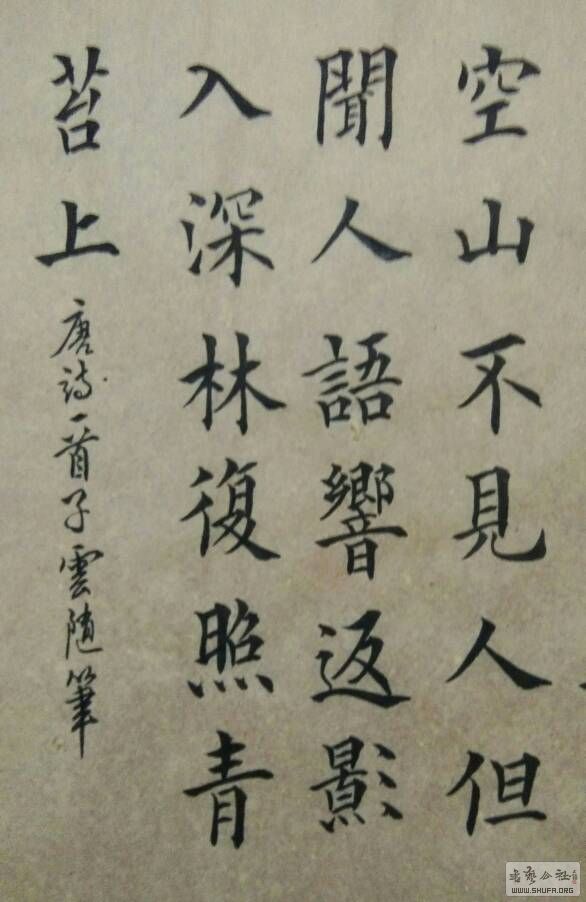 空山不見人但
聞人語響返影
入深林復照青
苔上唐詩一首子雲随筆
书艺公社
WWW.SHUFA.ORG